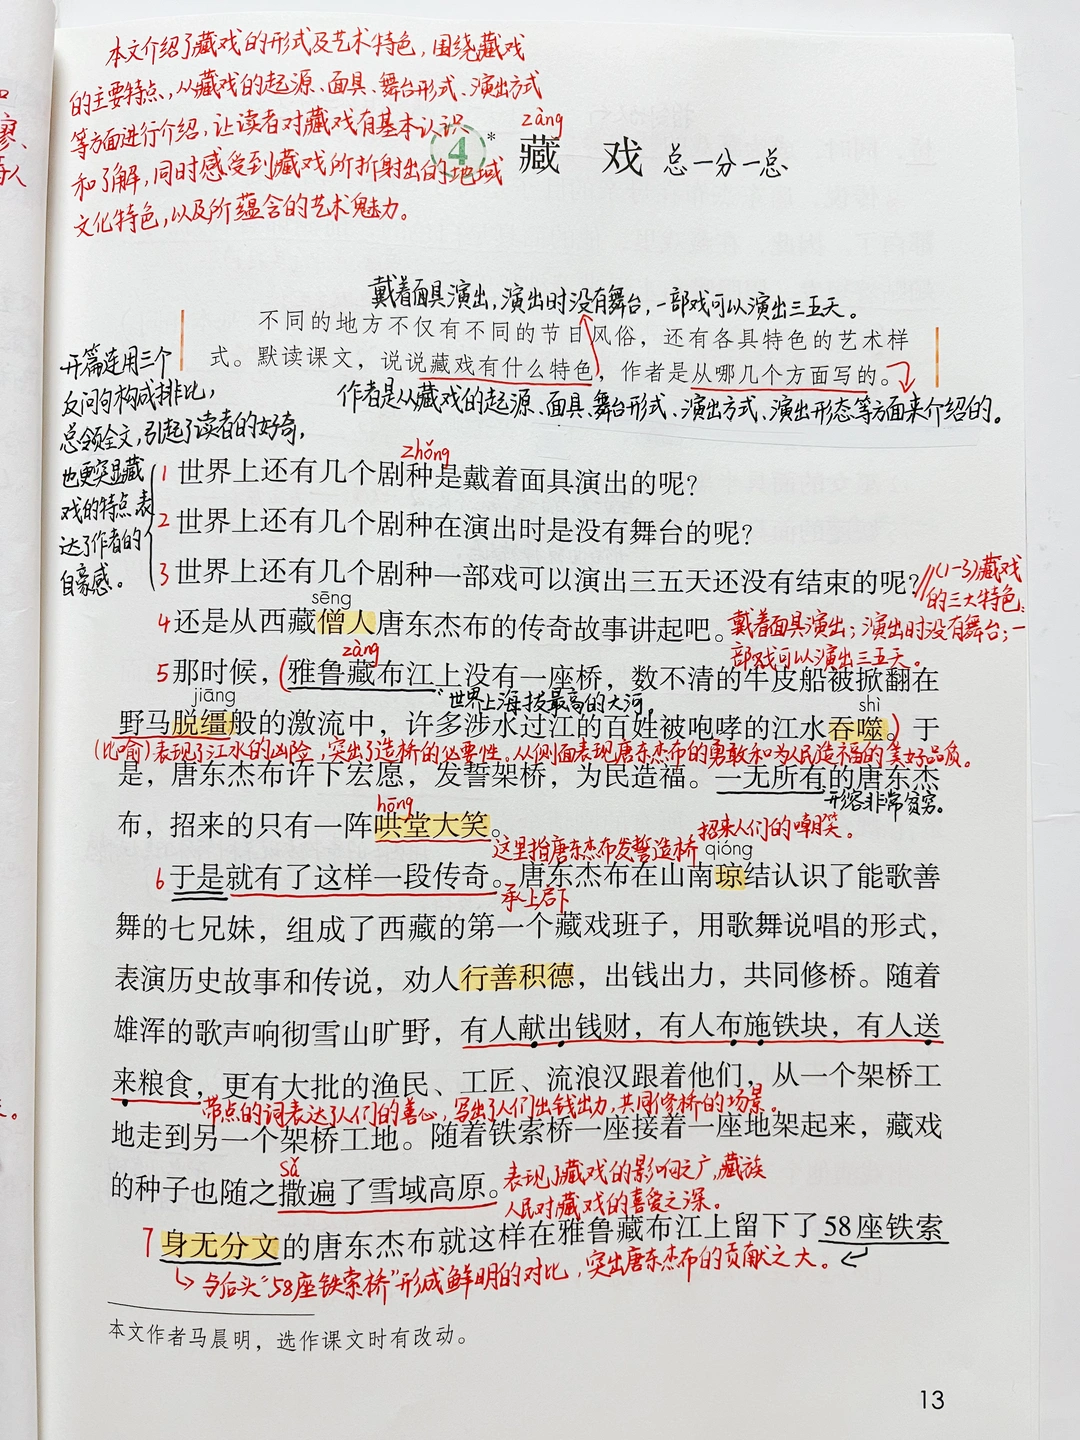 本文介绍了藏戏的形式及艺术特色，围绕藏戏
的主要特点，从藏戏的起源、面具、舞台形式、演出方式
等方面进行介绍，让读者对藏戏有基本认识
和了解，同时感受到藏戏所折射出的地域
文化特色，以及所蕴含的艺术魅力。
zàng
4* 藏 戏 总一分一总
戴着面具演出，演出时没有舞台，一部戏可以演出三五天。
不同的地方不仅有不同的节日风俗，还有各具特色的艺术样
式。默读课文，说说藏戏有什么特色，作者是从哪几个方面写的。
作者是从藏戏的起源、面具、舞台形式、演出方式、演出形态等方面来介绍的。
开篇连用三个
反问句构成排比，
总领全文，引起了读者的好奇，
也更突显藏
戏的特点，表
达了作者的
自豪感。
zhǒng
1 世界上还有几个剧种是戴着面具演出的呢？
2 世界上还有几个剧种在演出时是没有舞台的呢？
3 世界上还有几个剧种一部戏可以演出三五天还没有结束的呢？
(1-3)藏戏
的三大特色：
戴着面具演出；演出时没有舞台；一
部戏可以演出三五天。
sēng
4 还是从西藏僧人唐东杰布的传奇故事讲起吧。
zàng
5 那时候，(雅鲁藏布江上没有一座桥，数不清的牛皮船被掀翻在
世界上海拔最高的大河。
jiāng shì
野马脱缰般的激流中，许多涉水过江的百姓被咆哮的江水吞噬。)于
(比喻)表现了江水的凶险，突出了造桥的必要性。从侧面表现唐东杰布的勇敢和为人民造福的美好品质。
是，唐东杰布许下宏愿，发誓架桥，为民造福。一无所有的唐东杰
形容非常贫穷。
hōng
布，招来的只有一阵哄堂大笑。
招来人们的嘲笑。
这里指唐东杰布发誓造桥
qióng
6 于是就有了这样一段传奇。唐东杰布在山南琼结认识了能歌善
承上启下
舞的七兄妹，组成了西藏的第一个藏戏班子，用歌舞说唱的形式，
表演历史故事和传说，劝人行善积德，出钱出力，共同修桥。随着
雄浑的歌声响彻雪山旷野，有人献出钱财，有人布施铁块，有人送
来粮食，更有大批的渔民、工匠、流浪汉跟着他们，从一个架桥工
带点的词表达了人们的善心，写出了人们出钱出力，共同修桥的场景。
地走到另一个架桥工地。随着铁索桥一座接着一座地架起来，藏戏
sǎ
的种子也随之撒遍了雪域高原。
表现了藏戏的影响之广，藏族
人民对藏戏的喜爱之深。
7 身无分文的唐东杰布就这样在雅鲁藏布江上留下了58座铁索
与后头“58座铁索桥”形成鲜明的对比，突出唐东杰布的贡献之大。
本文作者马晨明，选作课文时有改动。
13